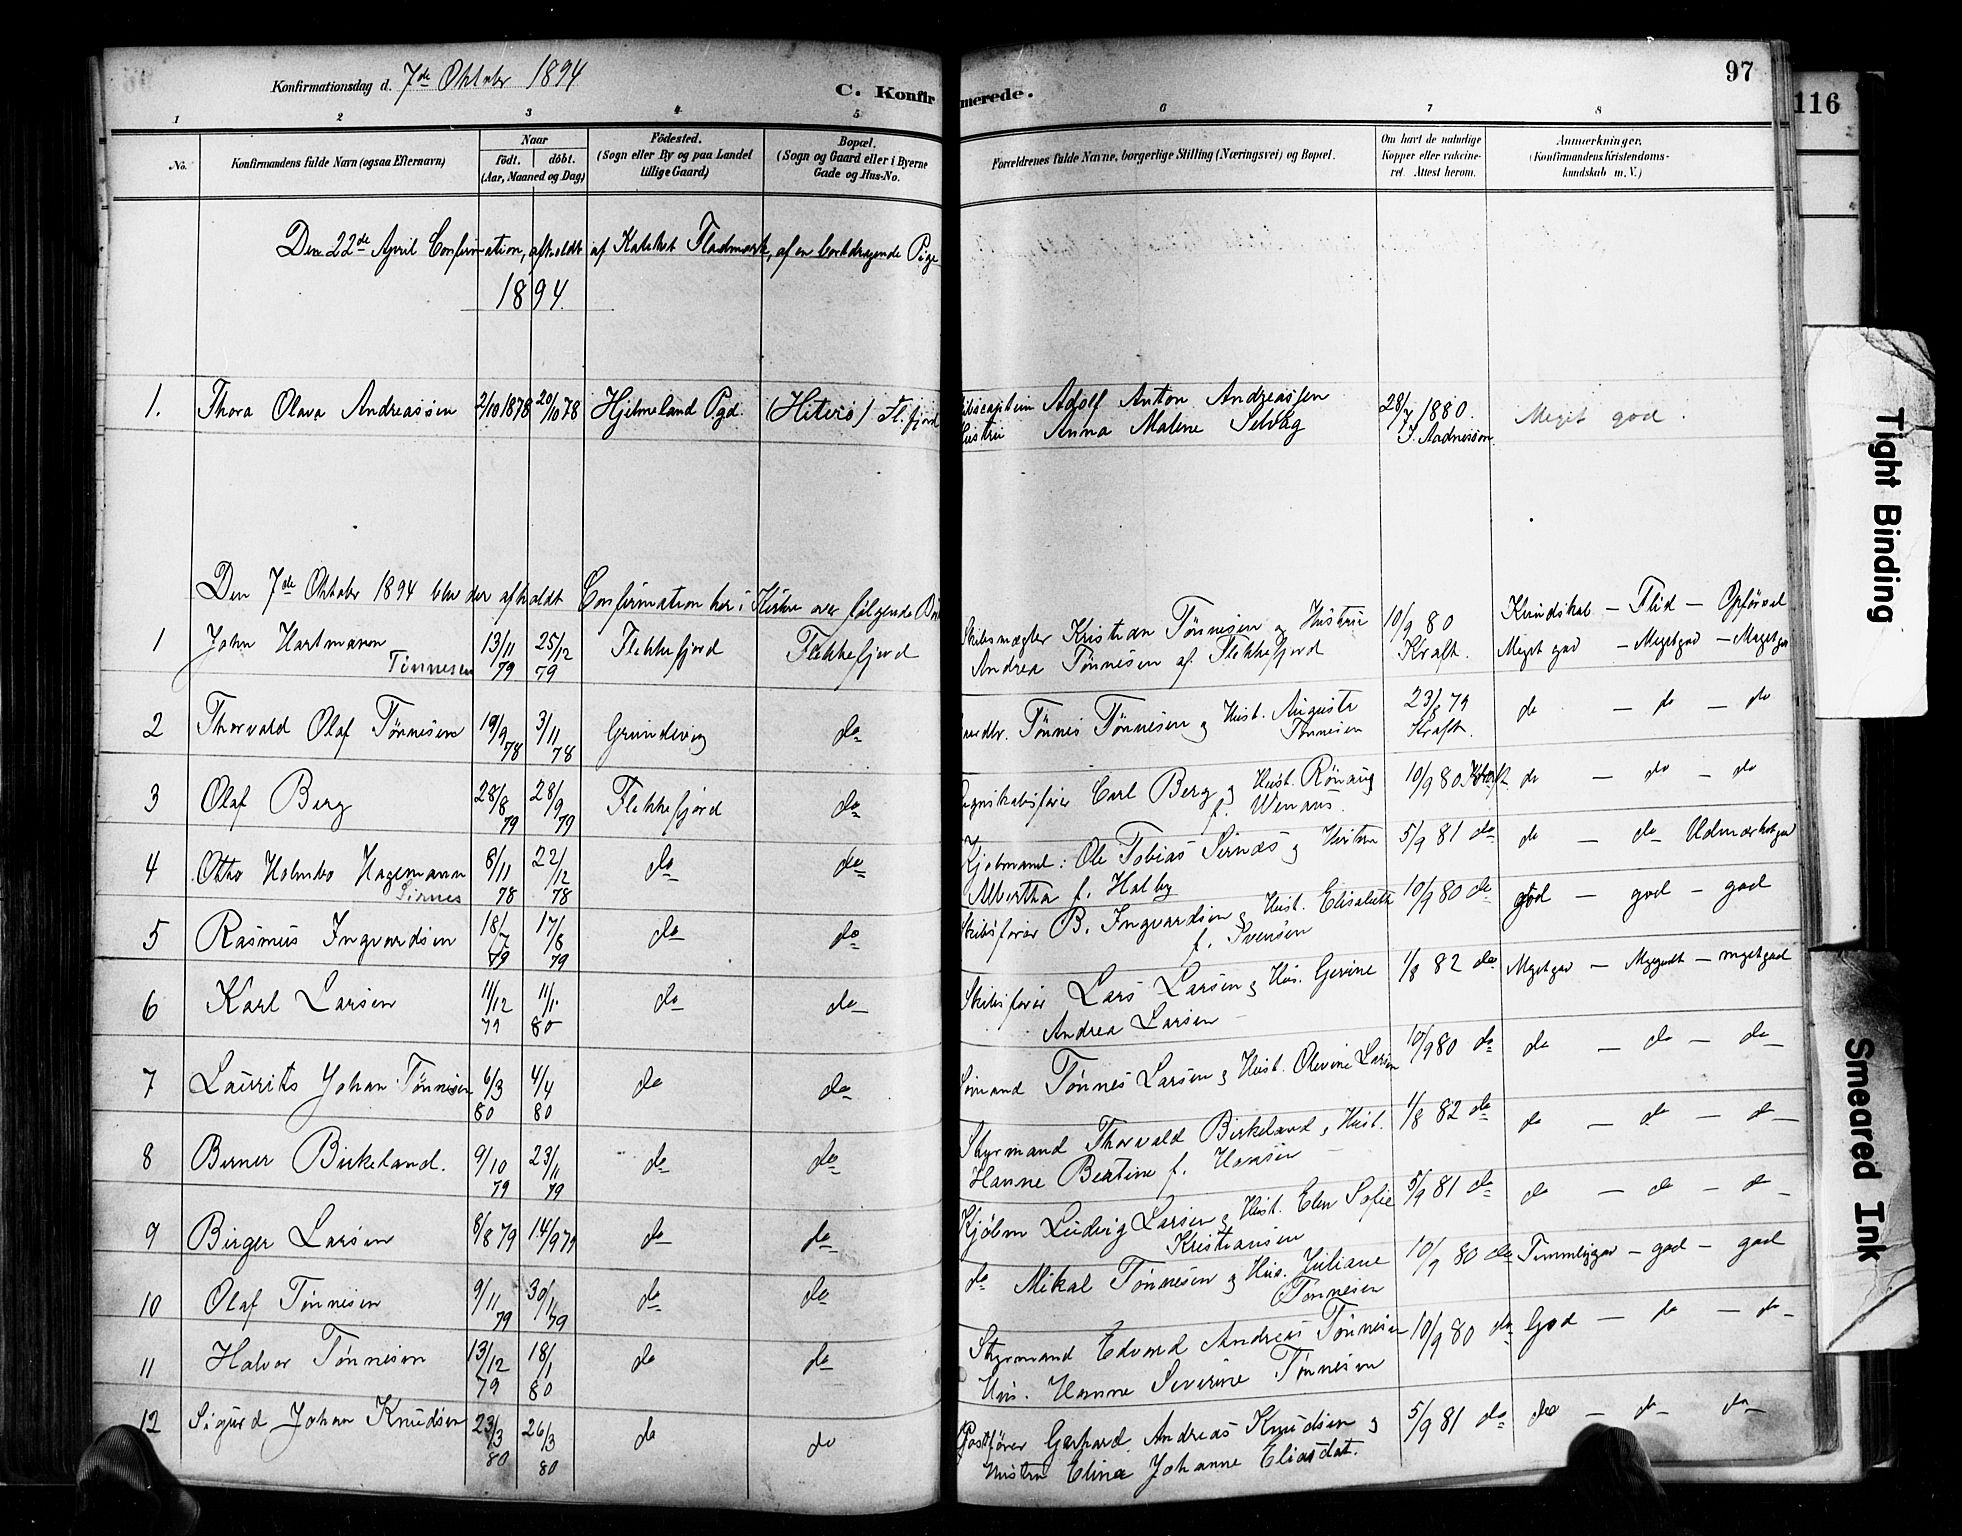 Konfirmationsdag d. 7de Oktober 1894
C. Konfirmerede.
97
116
1 2 3 4 5 6 7 8
No.
Konfirmandens fulde Navn (ogsaa Efternavn)
Naar
födt. döbt.
(Aar, Maaned og Dag)
Födested.
(Sogn eller By og paa Landet
tillige Gaard)
Bopæl.
(Sogn og Gaard eller i Byerne
Gade og Hus-No.
Forældrenes fulde Navne, borgerlige Stilling (Næringsvei) og Bopæl.
Om havt de naturlige
Kopper eller vakcine-
ret. Attest herom.
Anmerkninger.
(Konfirmandens Kristendoms-
kundskab m. V.)
Den 22de April Confirmation, afholdt af Katekt Fladmark, af en bortdragende Pige
1894.
1. Thora Olava Andreassen 2/10 1878 20/10 78 Hjelmeland Pgd. (Hiterö) Fl.fjord
Adolf Anton Andreassen
Hustru Anna Malene Selvåg
28/7 1880.
I. Aadnesson
Meget god.
Den 7de Oktober 1894 blev der afholdt Confirmation her i Kirken over følgende Børn
Kundskab – Flid – Opførsel
1 John Hartmann Tönnesen 13/11 79 25/12 79 Flekkefjord Flekkefjord
Skibsmægler Kristian Tönnesen og Hustru
Andrea Tönnesen af Flekkefjord
10/9 80 Kraft. Meget god – Meget god – Meget god
2 Thorvald Olaf Tönnesen 19/9 78 3/11 78 Grundevig do
Tönnes Tönnesen og Hust. Auguste
Tönnesen
23/8 79 Kraft. do – do – do
3 Olaf Berg 28/8 79 28/9 79 Flekkefjord do
Regnskabsfører Carl Berg og Hust. Rönaug
f. Wenaas.
10/9 80 Kraft. do – do – do
4 Otto Holmbo Hagemann Sirnes 8/11 78 22/12 78 do do
Kjøbmand: Ole Tobias Sirnæs og Hustru
Albertha f. Halby
5/9 81 do do – do Udmærket god
5 Rasmus Ingvardsen 18/7 79 17/8 79 do do
Skibsfører B. Ingvardsen og Hust. Elisabeth
f. Svensen
10/9 80 do god – god – god
6 Karl Larsen 11/12 79 11/1 80 do do
Skibsfører Lars Larsen og Hus. Gerine
Andrea Larsen
1/8 82 do Meget god – Megetgodt – meget god
7 Laurits Johan Tönnesen 6/3 80 4/4 80 do do
Sömand Tönnes Larsen og Hust. Olevine Larsen
10/9 80 do do – do – do
8 Berner Birkeland. 9/10 79 23/11 79 do do
Styrmand Thorvald Birkeland, Hust.
Hanne Bertine f. Hansen
1/8 82 do do – do – do
9 Birger Larsen 8/8 79 14/9 79 do do
Kjøbm Ludvig Larsen og Hust. Elen Sofie
Kristiansen
5/9 81 do do – do – do
10 Olaf Tönnesen 9/11 79 30/11 79 do do
do Mikal Tönnesen og Hus. Juliane
Tönnesen
10/9 80 do Temmelig god – god – god
11 Halvor Tönnesen 13/12 79 18/1 80 do do
Styrmand Edvard Andreas Tönnesen
Hus. Hanne Severine Tönnesen
10/9 80 do God – do – do
12 Sigurd Johan Knudsen 23/3 80 26/3 80 do do
Postfører Gerhard Andreas Knudsen og
Hustru Elina Johanne Eliasdat.
5/9 81 do do – do do
Tight Binding
Smeared Ink